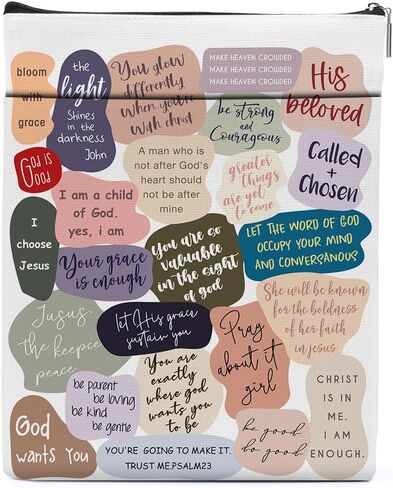 bloom
with
grace
the
light
Shines
in the
darkness
John
You glow
differently
when you're
with christ
MAKE HEAVEN CROWDED
MAKE HEAVEN CROWDED
MAKE HEAVEN CROWDED
His
beloved
be strong
and
Courageous
God is
Good
I am a child
of God.
yes, i am
A man who is
not after God's
heart should
not be after
mine
greater
things
are yet
to come
Called
+
Chosen
I
choose
Jesus
Your grace
is enough
You are so
valuable
in the sight
of god
LET THE WORD OF GOD
OCCUPY YOUR MIND
AND CONVERSANOUS
Jusus.
the keepee
peace
let His grace
sustain you
She will be known
for the boldness
of her faith
in jesus
You are
exactly
where god
wants you
to be
Pray
about it
girl
be parent
be loving
be kind
be gentle
CHRIST
IS IN
ME.
I AM
ENOUGH.
God
wants You
YOU'RE GOING TO MAKE IT.
TRUST ME.PSALM23
be good
do good